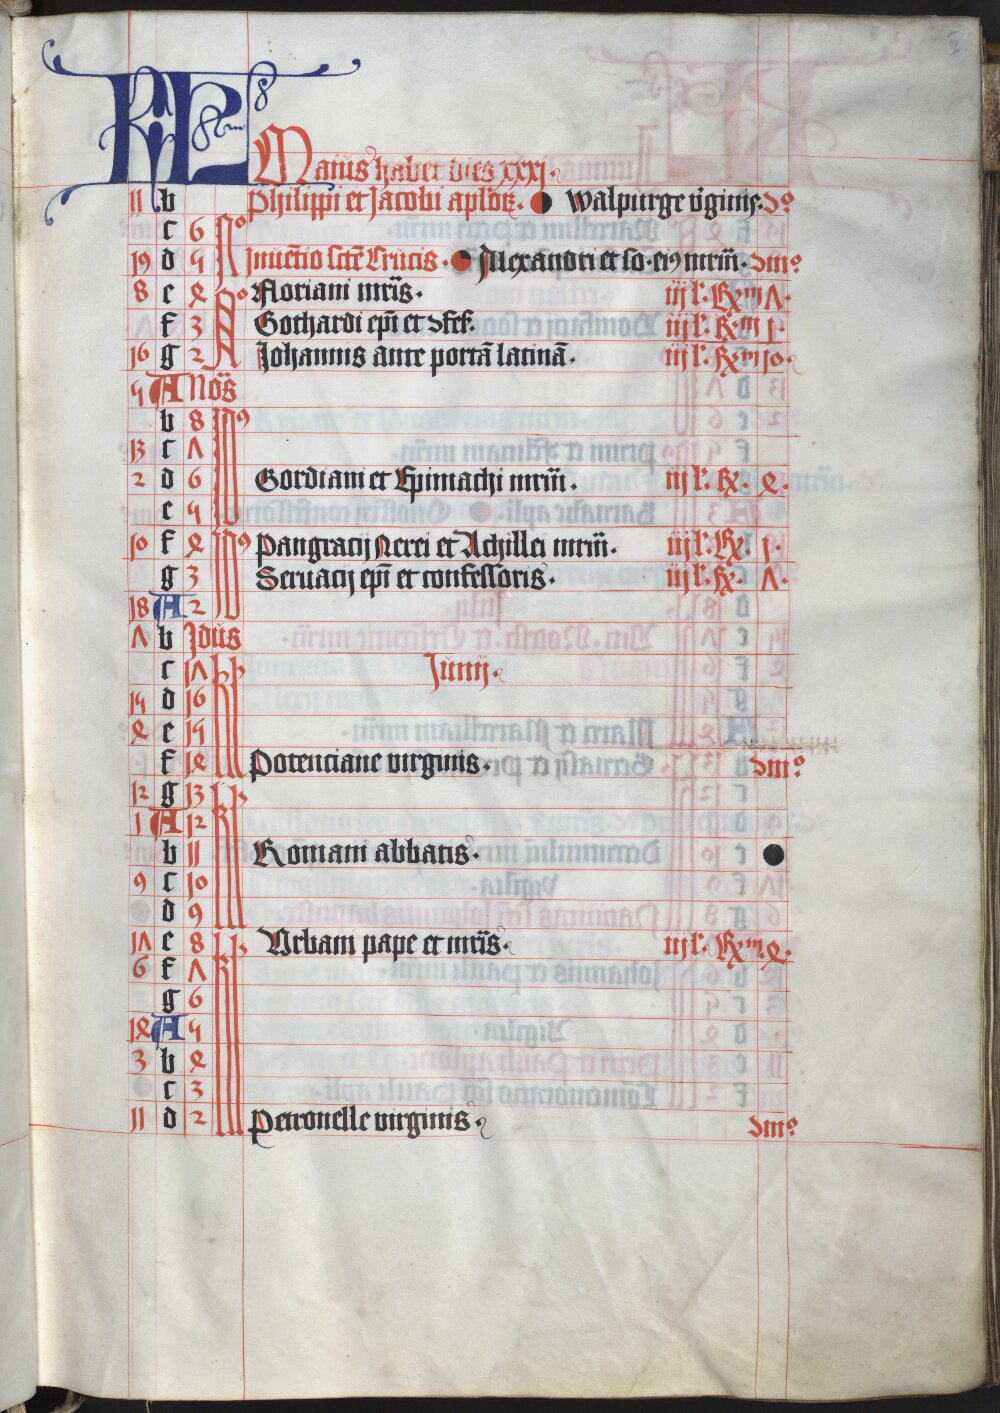 KL
Maius habet dies xxxi
11 b Philippi et Jacobi aplorꝝ. Walpurge v̓ginis. Dº
c 6 Nº
19 d 5 Inuētio sctē Crucis. Alexandri et so. eiꝰ mrm̄. Dmº
8 e 4 Nº Floriani mr̄is. iij l'. ℞m 7.
f 3 Gothardi ep̄i et ꝯfes. iij l'. ℞m j.
16 g 2 Johannis ante portā latinā. iij l'. ℞m 10.
5 A Nōs
b 8 Idꝰ
13 c 7
2 d 6 Gordiani et Epimachi mrm̄. iij l'. ℞. 4.
e 5
10 f 4 Idꝰ Pangracij Nerei et Achillei mrm̄. iij l'. ℞. j.
g 3 Seruacij ep̄i et confessoris. iij l'. ℞. 7.
18 A 2
7 b Jdūs
c 17 kl Junij.
15 d 16
4 e 15
f 14 Potenciane virginis. Dmº
12 g 13 kl
1 A 12
b 11 Romani abbatis.
9 c 10
d 9
17 e 8 kl Vrbani pape et mr̄is. iij l'. ℞m. 4.
6 f 7
g 6
14 A 5
3 b 4
c 3
11 d 2 Petronelle virginis. Dmº